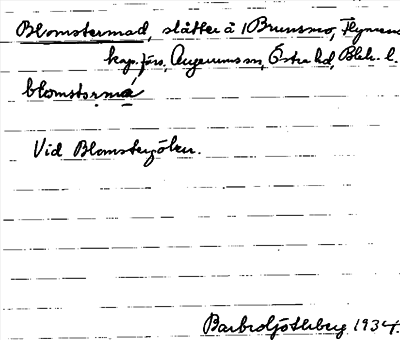 Blomstermad, slåtter å 1 Brunsmo, Flymens
kap. förs., Augerums sn, Östra hd, Blek. l.
blomstərmɑ
Vid Blomstergölen.
Barbro Ljöthberg 1934.